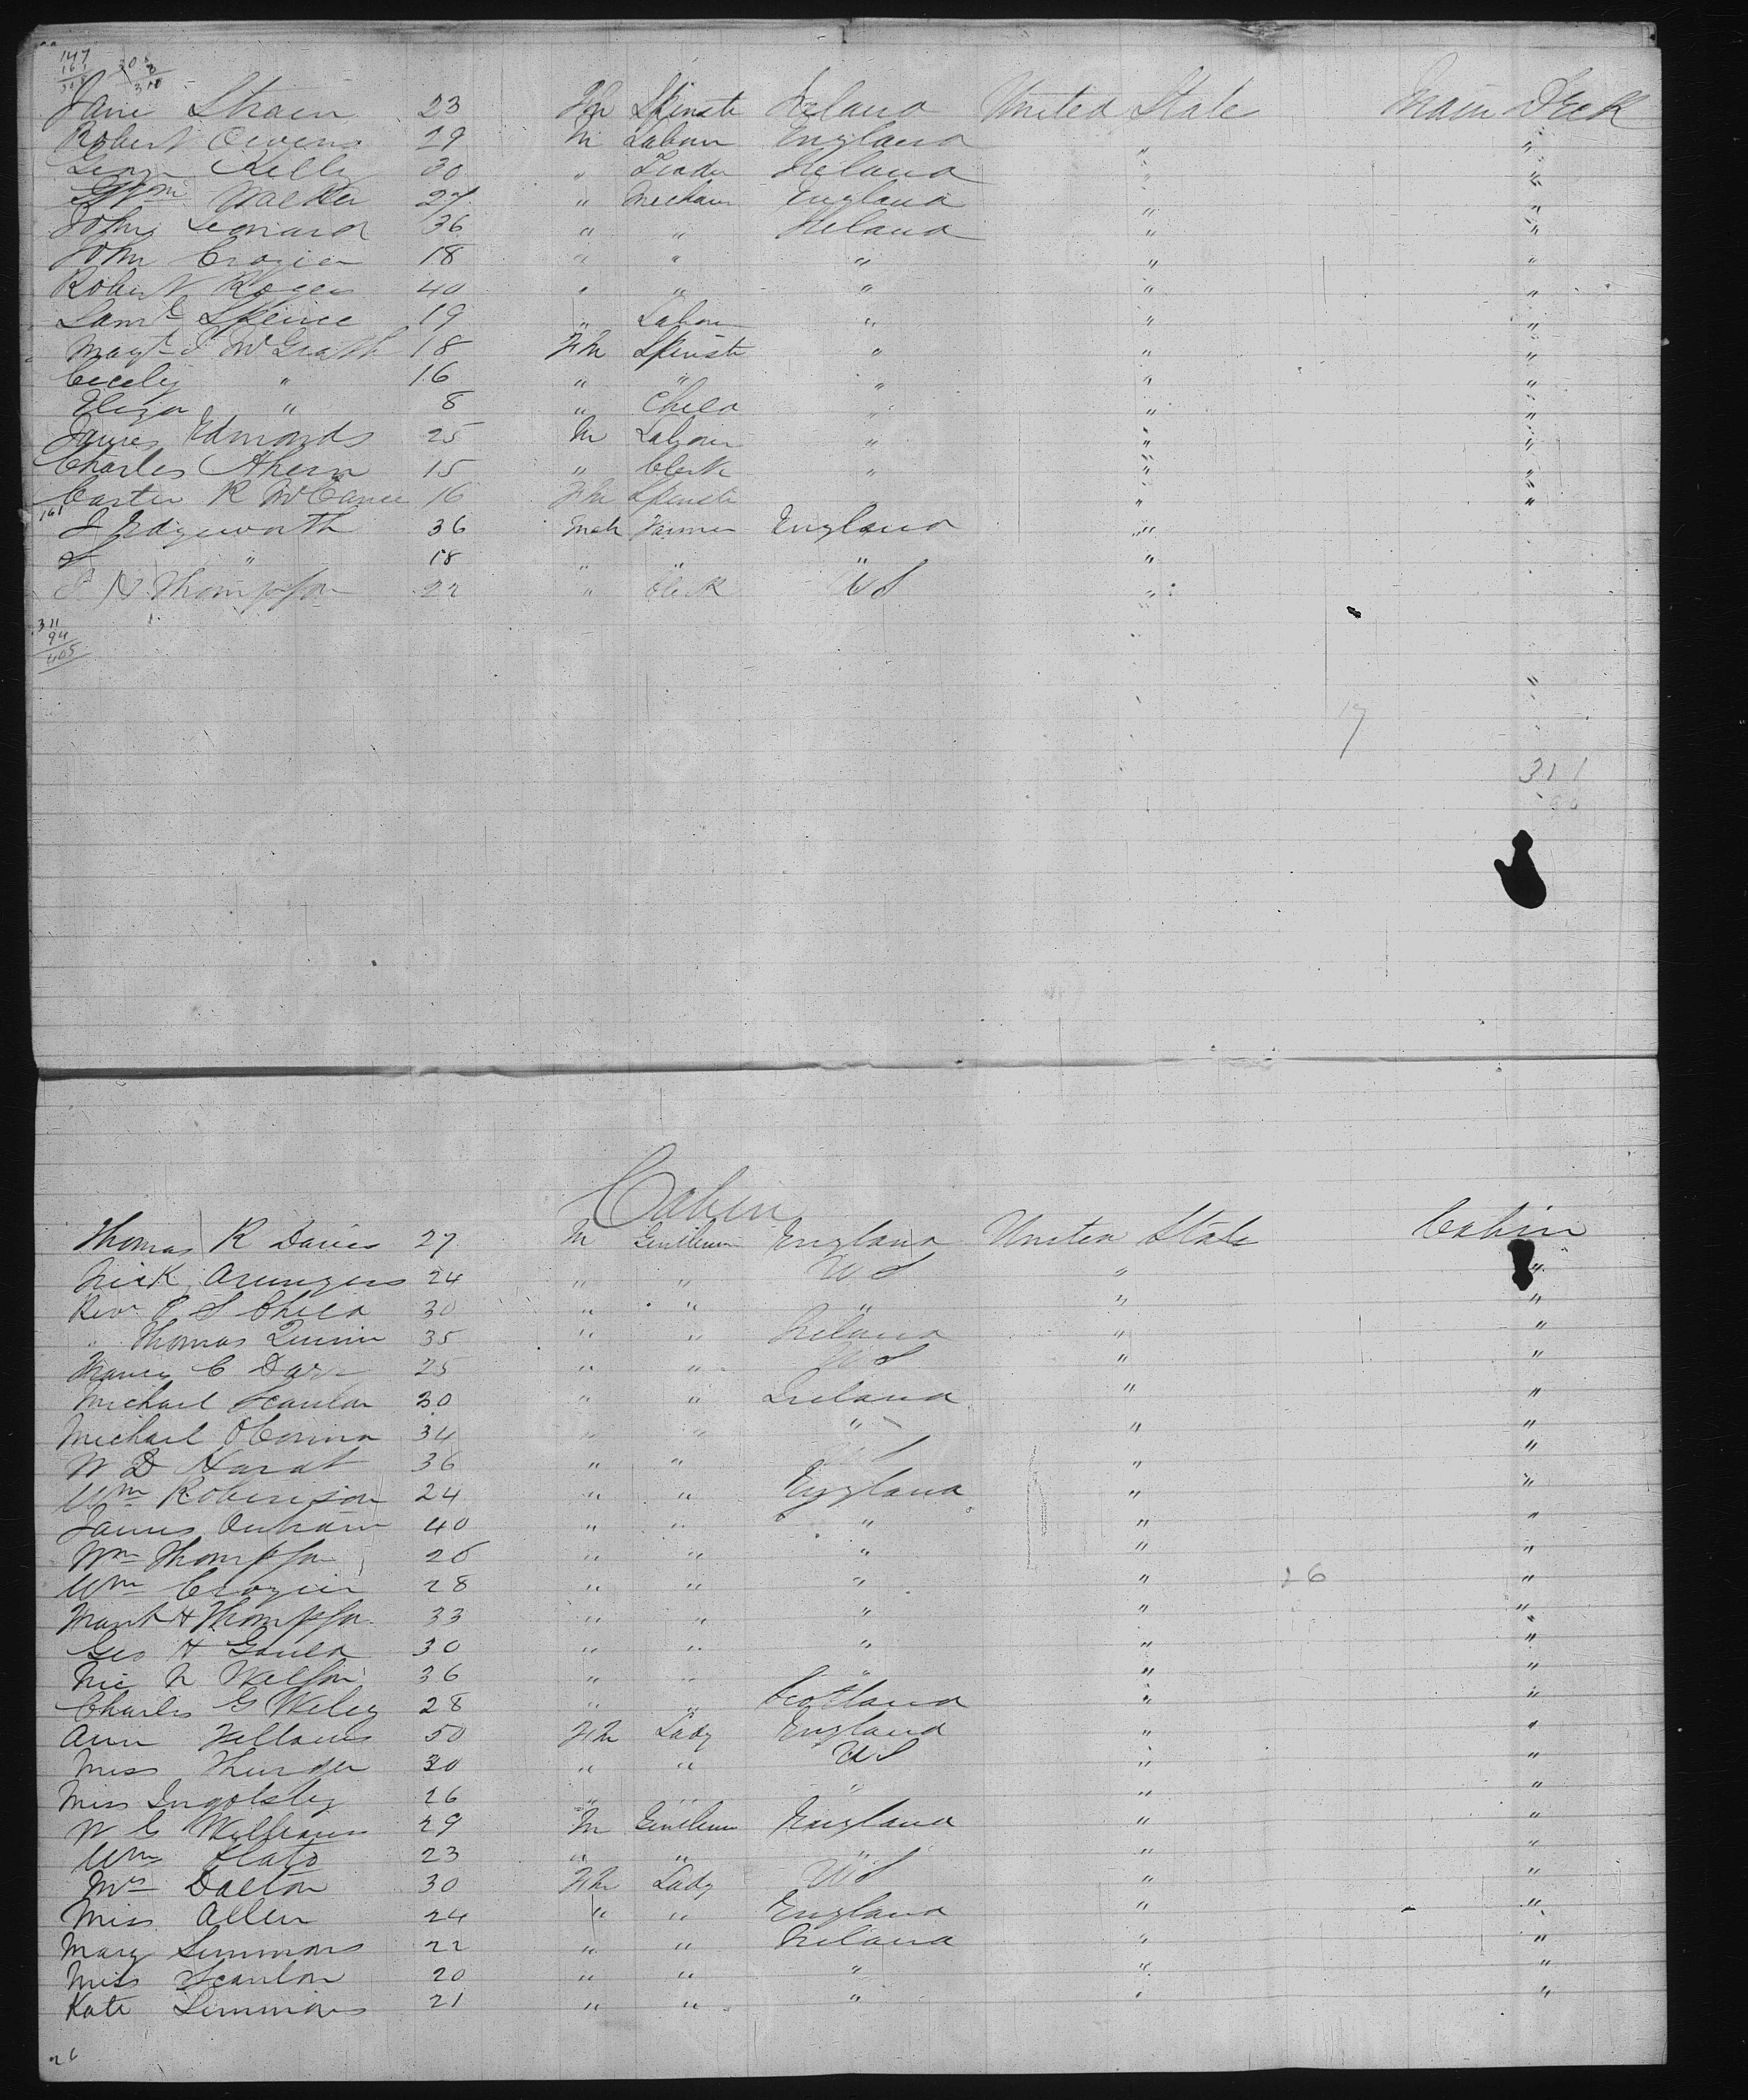 147
161
308
308
3
311
Jane Strain 23 Fm Spinstr Ireland United State Main Deck
Robert Owens 29 M Labour England " "
Kelly 30 " Ireland " "
Wm Walker 27 " Mechan England " "
John Leonard 36 " " Ireland " "
John Crozier 18 " " " " "
Robert Roger 40 " " " " "
Saml Spence 19 " Labour " " "
Magt J McGrath 18 Fm Spinst " " "
Cecily " 16 " " " " "
Eliza " 8 " Child " " "
James Edmonds 25 M Labour " " "
Charles Ahern 15 " Clerk " " "
Carter R McCance 16 Fm Spinst " " "
161
J Edgeworth 36 Male Farmer England "
" 18 " " " "
H Thompson 22 " Clerk US "
311
94
405
17
311
Cabin
Thomas R Davies 27 M Gentlem England United State Cabin
Nick 24 " " US " "
Revr S Child 30 " " " " "
" Thomas Quinn 35 " " Ireland " "
C 25 " " US " "
Michael Scanlon 30 " " Ireland " "
Michael OConnor 34 " " " " "
W D 36 " " " "
Wm Robinson 24 " " England " "
James Outram 40 " " " " "
Wm Thompson " " " " "
Wm Crozier 28 " " " " "
26
H Thompson 33 " " " " "
Geo H Gould 30 " " " " "
N Wilson 36 " " " " "
Charles G Wiley 28 " " Scotland " "
Ann Fellows 50 Fm Lady England " "
Miss 30 " " US " "
Miss Ingolsby 26 " " " " "
W G Williams 29 M Gentlem England " "
Wm 23 " " " "
Mrs Dalton 30 Fm Lady US " "
Miss Allen 24 " " England " "
Mary Simmons 22 " " Ireland " "
Miss Scanlon 20 " " " " "
Kate Simmons 21 " " " " "
26